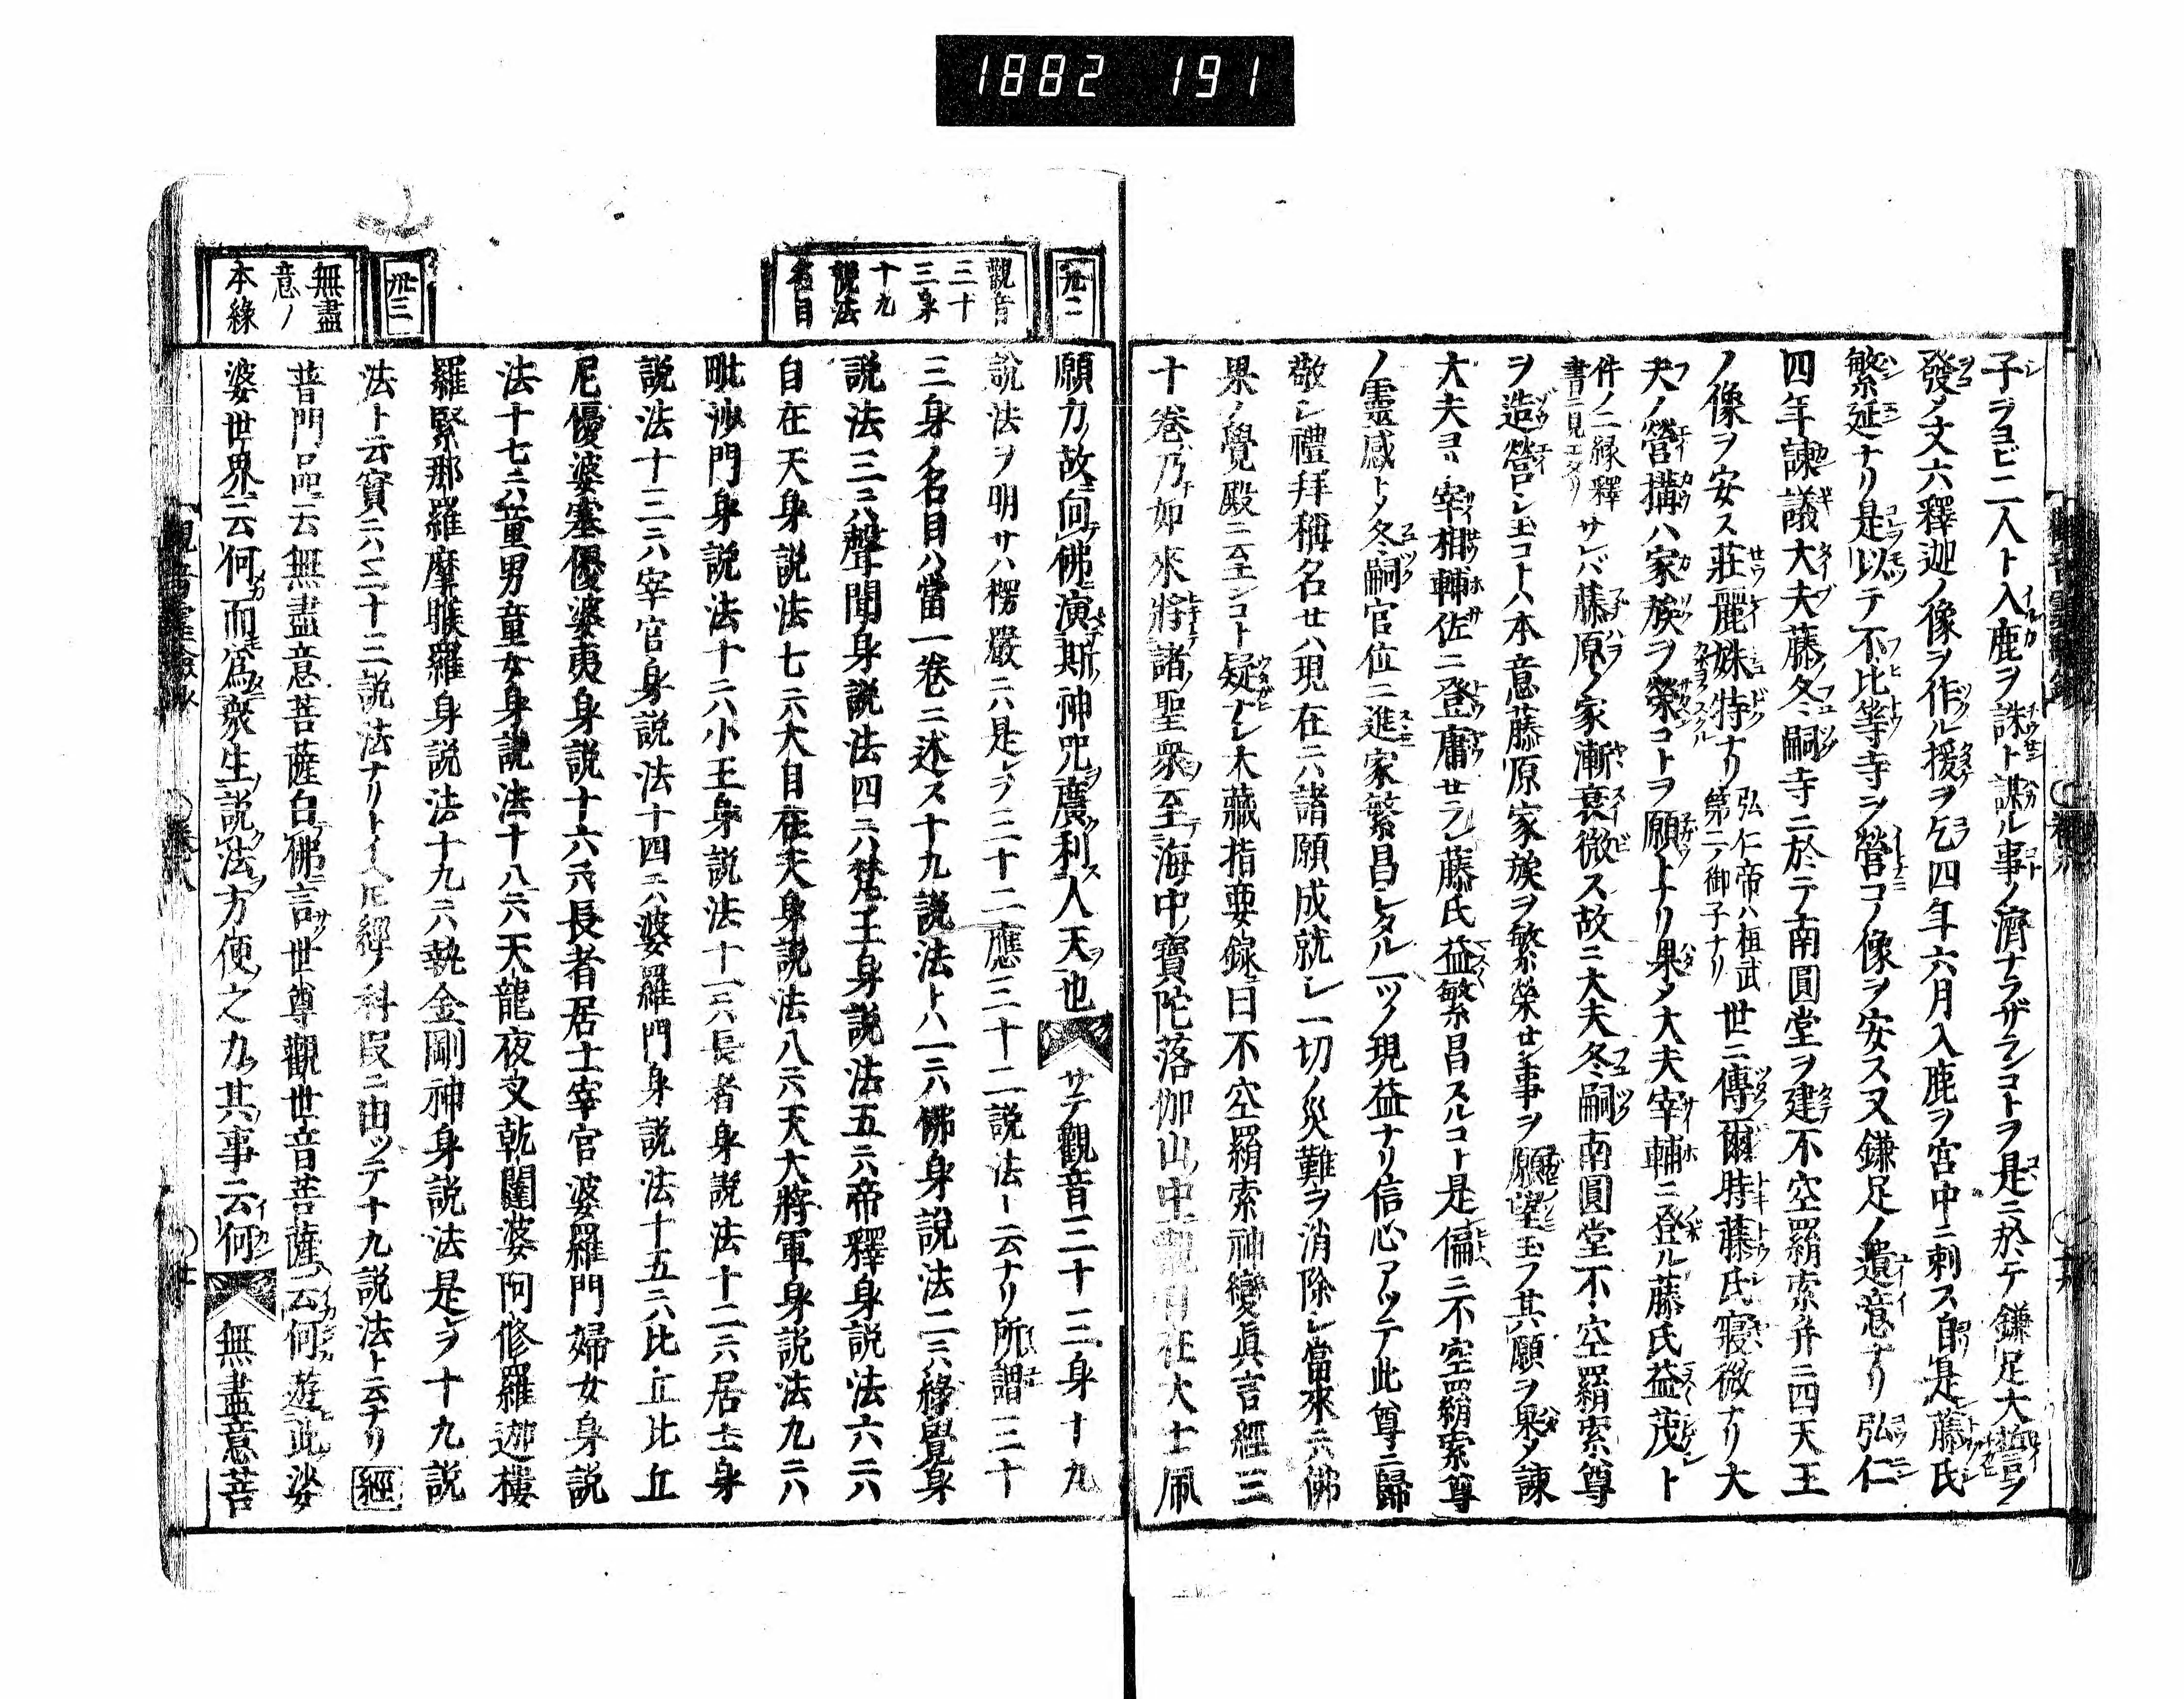 1882 191
子ラヨビニ入ト入鹿ヲ誅ト謀ル事ノ濟ナラザランコトヲ是ニ於テ鎌足大
發ノ丈六釋迦ノ像ヲ作ル援ヲ乞四年六月入鹿ヲ宮中ニ刺ス自是藤氏
繁延ナリ是以テ不比等寺ヲ營コノ像ヲ安ス又鎌足ノ遺意ナリ弘仁
四年諫議大夫藤冬嗣寺ニ於テ南圓堂ヲ建不空羂索并ニ四天王
ノ像ヲ安ス莊麗姝特ナリ
弘仁帝ハ桓武
第二ノ御子ナリ
世ニ傳爾時藤氏寢微ナリ大
夫ノ營構ハ家族ヲ榮コトヲ願トナリ果メ大夫宰輔ニ登ル藤氏益茂ト
件ノ二縁釋
書ニ見エタリ
サレバ藤原ノ家漸衰微ス故ニ大夫冬嗣南圓堂不空羂索尊
ヲ造營シ玉コトハ本意藤原家族ヲ繁榮セン事ヲ願望玉フ其願ヲ果メ諫
大夫ヨリ宰相輔佐ニ登庸セラレ藤氏益繁昌スルコト是偏ニ不空羂索尊
ノ靈感トメ冬嗣官位ニ進家繁昌シタル一ツノ現益ナリ信心アツテ此尊ニ歸
敬シ禮拜稱名セハ現在ニハ諸願成就シ一切ノ災難ヲ消除シ當來ニハ佛
果ノ覺殿ニ至ンコト疑ナシ大藏指要録曰不空羂索神變眞言經三
十卷乃如來將諸聖衆至海中寶陀落伽山中觀自在大士佩
卅二
觀音
三十
三身
十九
説法
名目
願力故向佛演斯神咒廣利人天也 サテ觀音三十三身十九
説法ヲ明サハ楞嚴ニハ是ヲ三十二應三十二説法ト云ナリ所謂三十
三身ノ名目ハ當一卷ニ述ス十九説法トハ一ニハ佛身説法二ニハ緣覺身
説法三ニハ聲聞身説法四ニハ梵王身説法五ニハ帝釋身説法六ニハ
自在天身説法七ニハ大自在天身説法八ニハ天大將軍身説法九ニハ
毗沙門身説法十ニハ小王身説法十一ニハ長者身説法十二ニハ居士身
説法十三ニハ宰官身説法十四ニハ婆羅門身説法十五ニハ比丘比丘
尼優婆塞優婆夷身説十六ニハ長者居士宰官婆羅門婦女身説
法十七ニハ童男童女身説法十八ニハ天龍夜叉乾闥婆阿修羅迦樓
羅緊那羅摩睺羅身説法十九ニハ執金剛神身説法是ヲ十九説
法ト云實ニハ三十三説法ナリトイヘ𪜈經ノ科段ニ由ツテ十九説法ト云ナリ 經
普門品云無盡意菩薩白佛言世尊觀世音菩薩云何遊此娑
婆世界云何而爲衆生説法方便之力其事云何 無盡意菩
卅三
無盡
意ノ
本緣